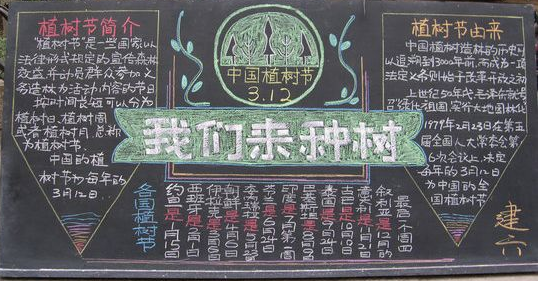 植树节简介
"植树节"是一些国家以
法律形式规定的宣传森林
效益,并动员群众参加义
务造林为活动内容的节日
按时间长短可以分为
植树日、植树周
或者植树月,总称
为植树节.
中国的植
树节为每年的
3月12日.
中国植树节
3.12
我们来种树
植树节由来
中国植树造林的历史可
以追溯到3000年前,而成为一项
法定义务则始于改革开放之初
上世纪50年代,毛泽东就号
召绿化祖国,实行大地园林化
1979年2月23日在第五
届全国人大常委会第
6次会议上,决定
每年的3月12日
为中国的全
国植树节
各国植树节
约旦是1月15日
西班牙是2月1日
伊拉克是3月6日
朝鲜是4月6日
印度是7月第一周
泰国是9月24日
古巴是10月10日
意大利是11月21日
叙利亚是12月的
最后一个周四
建六